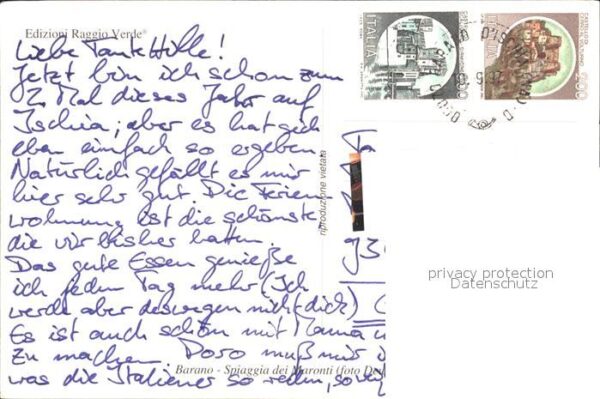 Edizioni Raggio Verde®
Liebe Tante Hille!
Jetzt bin ich schon zum
2. Mal dieses Jahr auf
Ischia; aber es hat sich
eben einfach so ergeben.
Natürlich gefällt es mir
hier sehr gut. Die Ferien
wohnung ist die schönste
die wir bisher hatten.
Das gute Essen genieße
ich jeden Tag mehr (Ich
werde aber deswegen nicht dick)
Es ist auch schön mit Mama
zu machen. Doro muß mir
was die Italiener so reden,
Barano - Spiaggia dei Maronti (foto
riproduzione vietata
ITALIA
privacy protection
Datenschutz